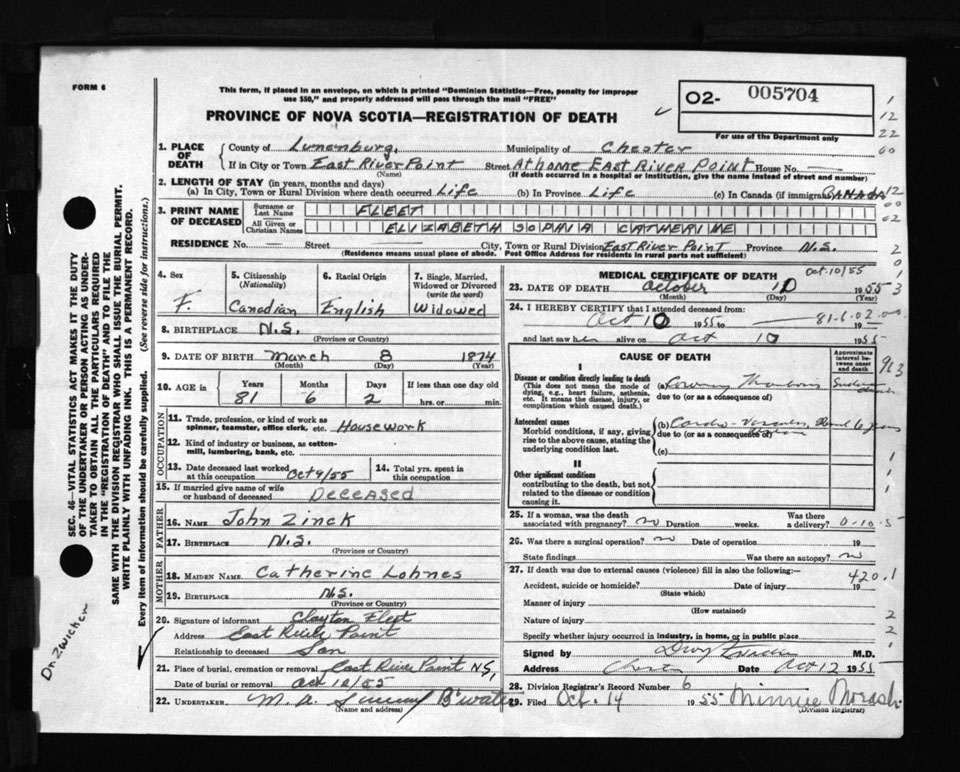 FORM 6
This form, if placed in an envelope, on which is printed "Dominion Statistics—Free, penalty for improper
use $50," and properly addressed will pass through the mail "FREE"
PROVINCE OF NOVA SCOTIA—REGISTRATION OF DEATH
02- 005704
For use of the Department only
1. PLACE OF DEATH
County of Lunenburg, Municipality of Chester
If in City or Town East River Point Street At home East River Point House No.
(Name) (If death occurred in a hospital or institution, give the name instead of street and number)
2. LENGTH OF STAY (in years, months and days)
(a) In City, Town or Rural Division where death occurred Life (b) In Province Life (c) In Canada (if immigrant) CANADA
3. PRINT NAME OF DECEASED
Surname or Last Name FLEET
All Given or Christian Names ELIZABETH SOPHIA CATHERINE
RESIDENCE No. — Street City, Town or Rural Division East River Point Province N.S.
(Residence means usual place of abode. Post Office Address for residents in rural parts not sufficient)
4. Sex
F.
5. Citizenship
(Nationality)
Canadian
6. Racial Origin
English
7. Single, Married, Widowed or Divorced
(write the word)
Widowed
8. BIRTHPLACE N.S.
(Province or Country)
9. DATE OF BIRTH March 8 1874
(Month) (Day) (Year)
10. AGE in
Years Months Days If less than one day old
81 6 2 hrs. or min.
OCCUPATION
11. Trade, profession, or kind of work as spinner, teamster, office clerk, etc. Housework
12. Kind of industry or business, as cotton-mill, lumbering, bank, etc.
13. Date deceased last worked at this occupation Oct 9/55
14. Total yrs. spent in this occupation
15. If married give name of wife or husband of deceased Deceased
FATHER
16. NAME John Zinck
17. BIRTHPLACE N.S.
(Province or Country)
MOTHER
18. MAIDEN NAME Catherine Lohnes
19. BIRTHPLACE N.S.
(Province or Country)
20. Signature of informant Clayton Fleet
Address East River Point
Relationship to deceased Son
21. Place of burial, cremation or removal East River Point NS,
Date of burial or removal Oct 12/55
22. UNDERTAKER M. A.
(Name and address)
MEDICAL CERTIFICATE OF DEATH
Oct. 10/55
23. DATE OF DEATH October 10 1955
(Month) (Day) (Year)
24. I HEREBY CERTIFY that I attended deceased from
Oct 10 1955 to 19
and last saw her alive on Oct 10 1955
CAUSE OF DEATH
Approximate interval between onset and death
I
Disease or condition directly leading to death
(This does not mean the mode of dying, e.g., heart failure, asthenia, etc. It means the disease, injury, or complication which caused death.)
(a)
due to (or as a consequence of)
Antecedent causes
Morbid conditions, if any, giving rise to the above cause, stating the underlying condition last.
(b) Cardio-
due to (or as a consequence of)
(c)
II
Other significant conditions
contributing to the death, but not related to the disease or condition causing it.
25. If a woman, was the death associated with pregnancy? no Duration weeks. Was there a delivery?
26. Was there a surgical operation? no Date of operation 19
State findings Was there an autopsy? no
27. If death was due to external causes (violence) fill in also the following:—
Accident, suicide or homicide? Date of injury 19
(State which)
420.1
Manner of injury
(How sustained)
Nature of injury
Specify whether injury occurred in industry, in home, or in public place
Signed by M.D.
Address Chester Date Oct 12 1955
28. Division Registrar's Record Number 6
29. Filed Oct. 14 1955 Minnie
(Division Registrar)
SEC. 46—VITAL STATISTICS ACT MAKES IT THE DUTY
OF THE UNDERTAKER OR PERSON ACTING AS UNDER-
TAKER TO OBTAIN ALL THE PARTICULARS REQUIRED
IN THE "REGISTRATION OF DEATH" AND TO FILE THE
SAME WITH THE DIVISION REGISTRAR WHO SHALL ISSUE THE BURIAL PERMIT.
WRITE PLAINLY WITH UNFADING INK. THIS IS A PERMANENT RECORD.
Every item of information should be carefully supplied. (See reverse side for instructions.)
Dr. Zwicker